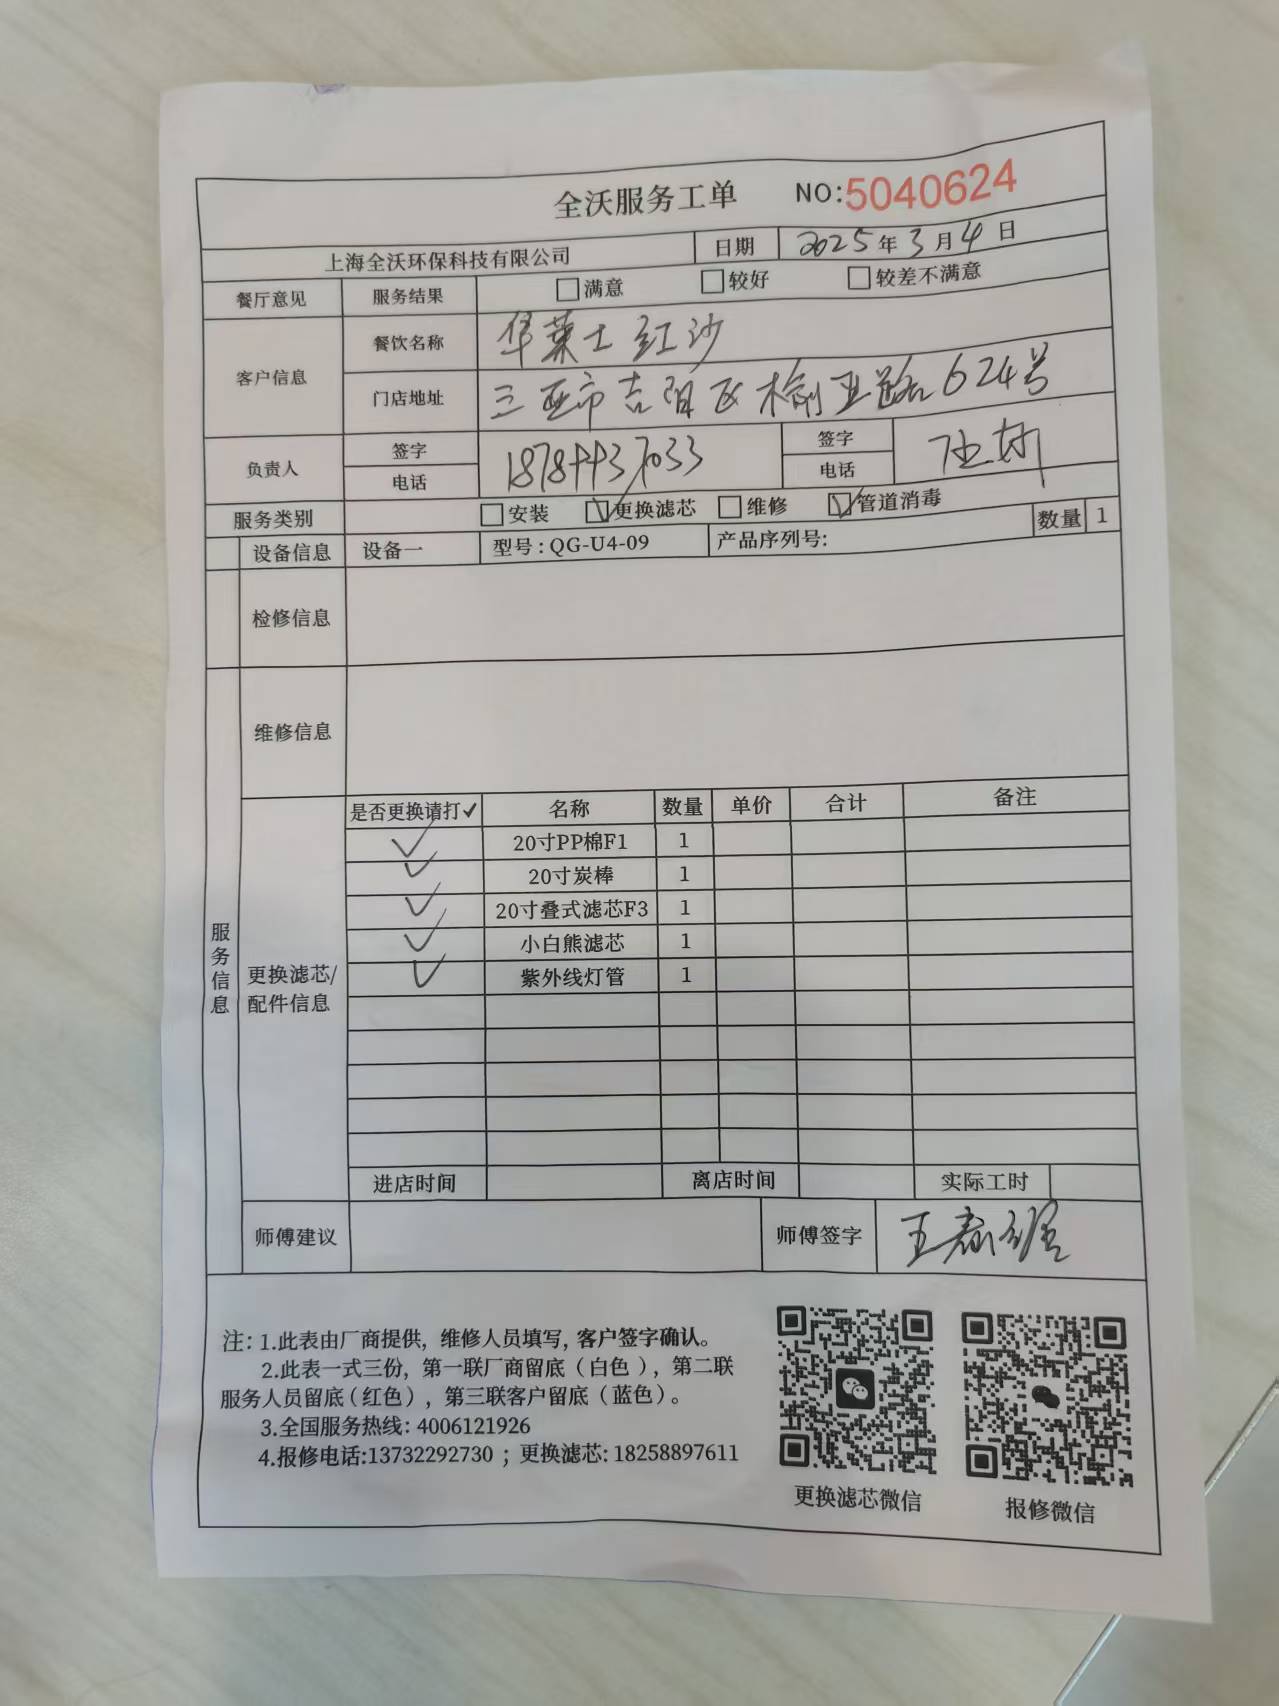 全沃服务工单 NO:5040624
上海全沃环保科技有限公司 日期 2025年3月4日
餐厅意见 服务结果 满意 较好 较差不满意
客户信息 餐饮名称 华莱士红沙
门店地址 三亚市吉阳区榆亚路624号
负责人 签字 电话 签字 电话
服务类别 安装 更换滤芯 维修 管道消毒
设备信息 设备一 型号:QG-U4-09 产品序列号: 数量 1
检修信息
维修信息
服务信息
更换滤芯/配件信息
是否更换请打✓ 名称 数量 单价 合计 备注
✓ 20寸PP棉F1 1
✓ 20寸炭棒 1
✓ 20寸叠式滤芯F3 1
✓ 小白熊滤芯 1
✓ 紫外线灯管 1
进店时间 离店时间 实际工时
师傅建议 师傅签字
注:1.此表由厂商提供,维修人员填写,客户签字确认。
2.此表一式三份,第一联厂商留底(白色),第二联
服务人员留底(红色),第三联客户留底(蓝色)。
3.全国服务热线:4006121926
4.报修电话:13732292730;更换滤芯:18258897611
更换滤芯微信 报修微信